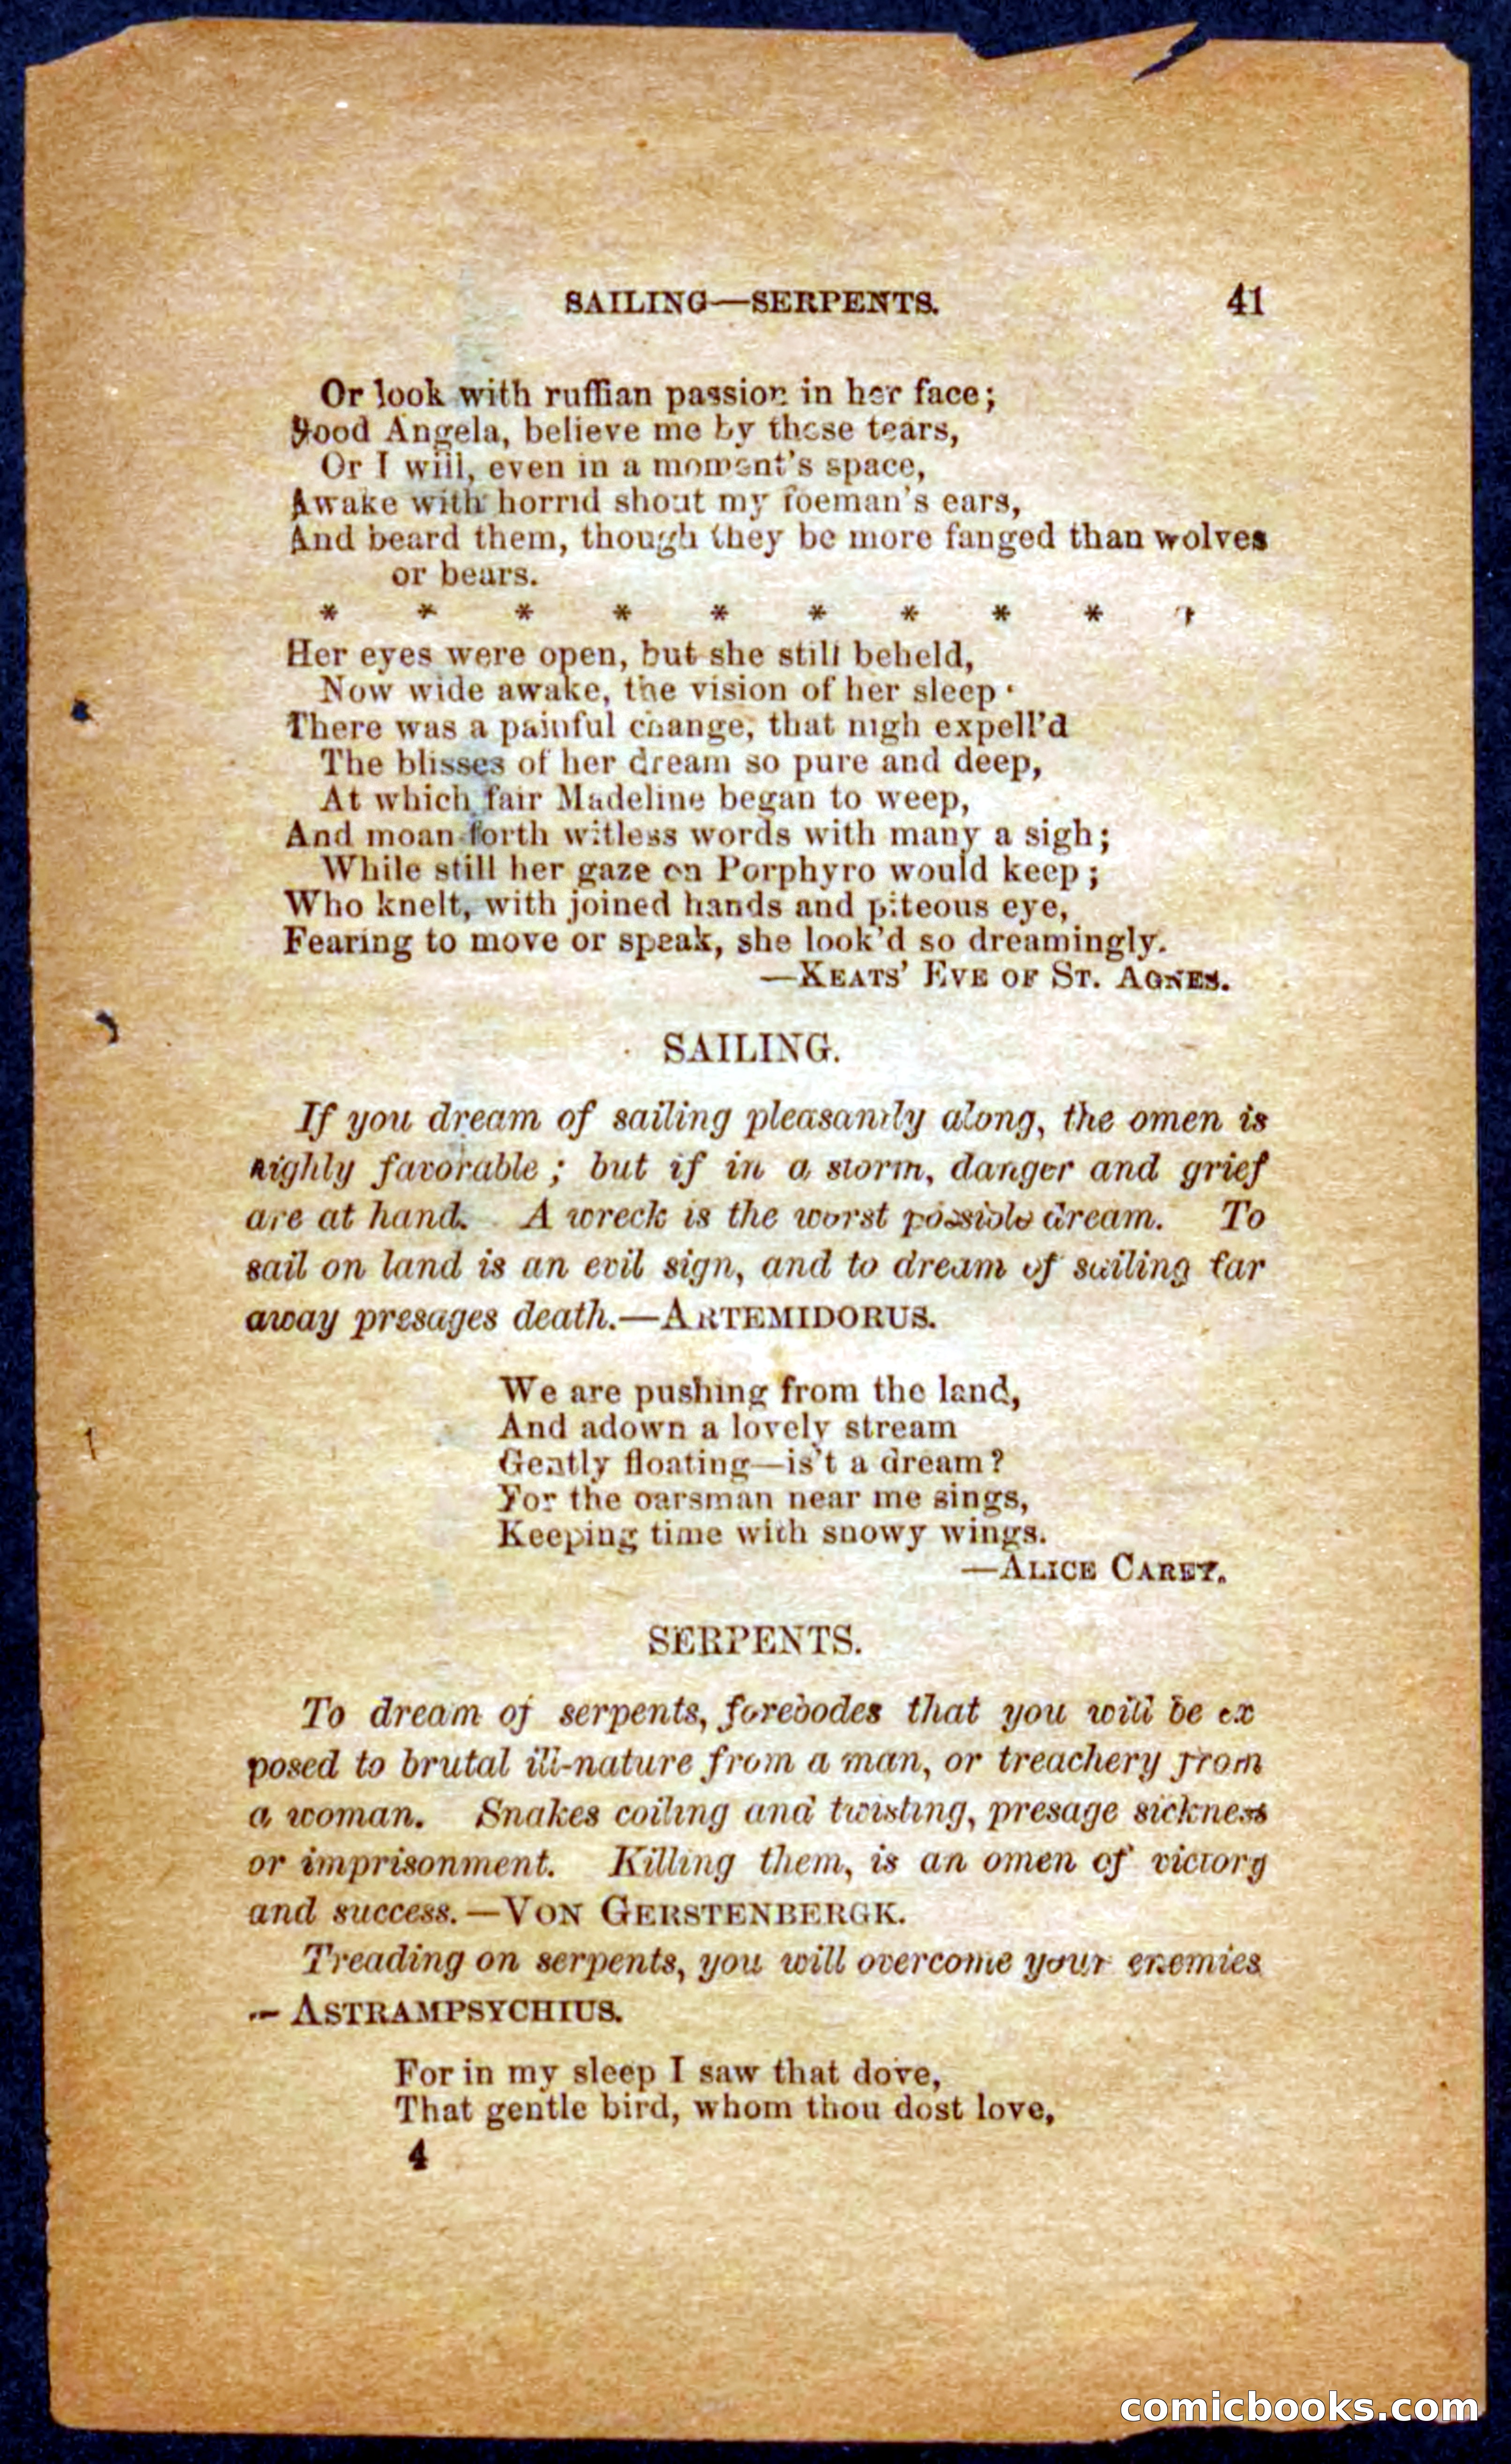 SAILING—SERPENTS. 41
Or look with ruffian passion in her face;
Good Angela, believe me by these tears,
Or I will, even in a moment's space,
Awake with horrid shout my foeman's ears,
And beard them, though they be more fanged than wolves
or bears.
* * * * * * * * * *
Her eyes were open, but she still beheld,
Now wide awake, the vision of her sleep·
There was a painful change, that nigh expell'd
The blisses of her dream so pure and deep,
At which fair Madeline began to weep,
And moan forth witless words with many a sigh;
While still her gaze on Porphyro would keep;
Who knelt, with joined hands and piteous eye,
Fearing to move or speak, she look'd so dreamingly.
—KEATS' EVE OF ST. AGNES.
SAILING.
If you dream of sailing pleasantly along, the omen is
highly favorable; but if in a storm, danger and grief
are at hand. A wreck is the worst possible dream. To
sail on land is an evil sign, and to dream of sailing far
away presages death.—ARTEMIDORUS.
We are pushing from the land,
And adown a lovely stream
Gently floating—is't a dream?
For the oarsman near me sings,
Keeping time with snowy wings.
—ALICE CAREY.
SERPENTS.
To dream of serpents, forebodes that you will be ex
posed to brutal ill-nature from a man, or treachery from
a woman. Snakes coiling and twisting, presage sickness
or imprisonment. Killing them, is an omen of victory
and success.—VON GERSTENBERGK.
Treading on serpents, you will overcome your enemies
—ASTRAMPSYCHIUS.
For in my sleep I saw that dove,
That gentle bird, whom thou dost love,
4
comicbooks.com